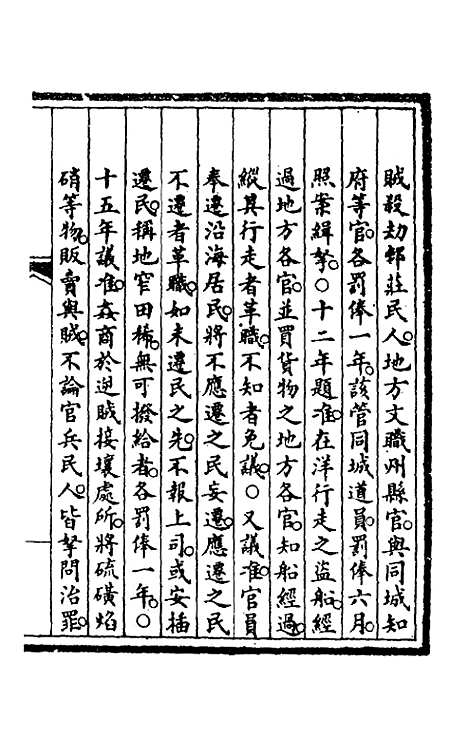 賊殺劫邨莊民人。地方文職州縣官。與同城知
府等官。各罰俸一年。該管同城道員。罰俸六月。
照案緝拏。○十二年題准。在洋行走之盜船經
過地方各官。並買貨物之地方各官。知船經過。
縱其行走者革職。不知者免議。○又議准。官員
奉遷沿海居民。將不應遷之民妄遷。應遷之民
不遷者革職。如未遷民之先。不報上司。或安插
遷民。稱地窄田稀。無可撥給者。各罰俸一年。○
十五年議准。姦商於逆賊接壤處所。將硫磺焰
硝等物。販賣與賊。不論官兵民人。皆拏問治罪。